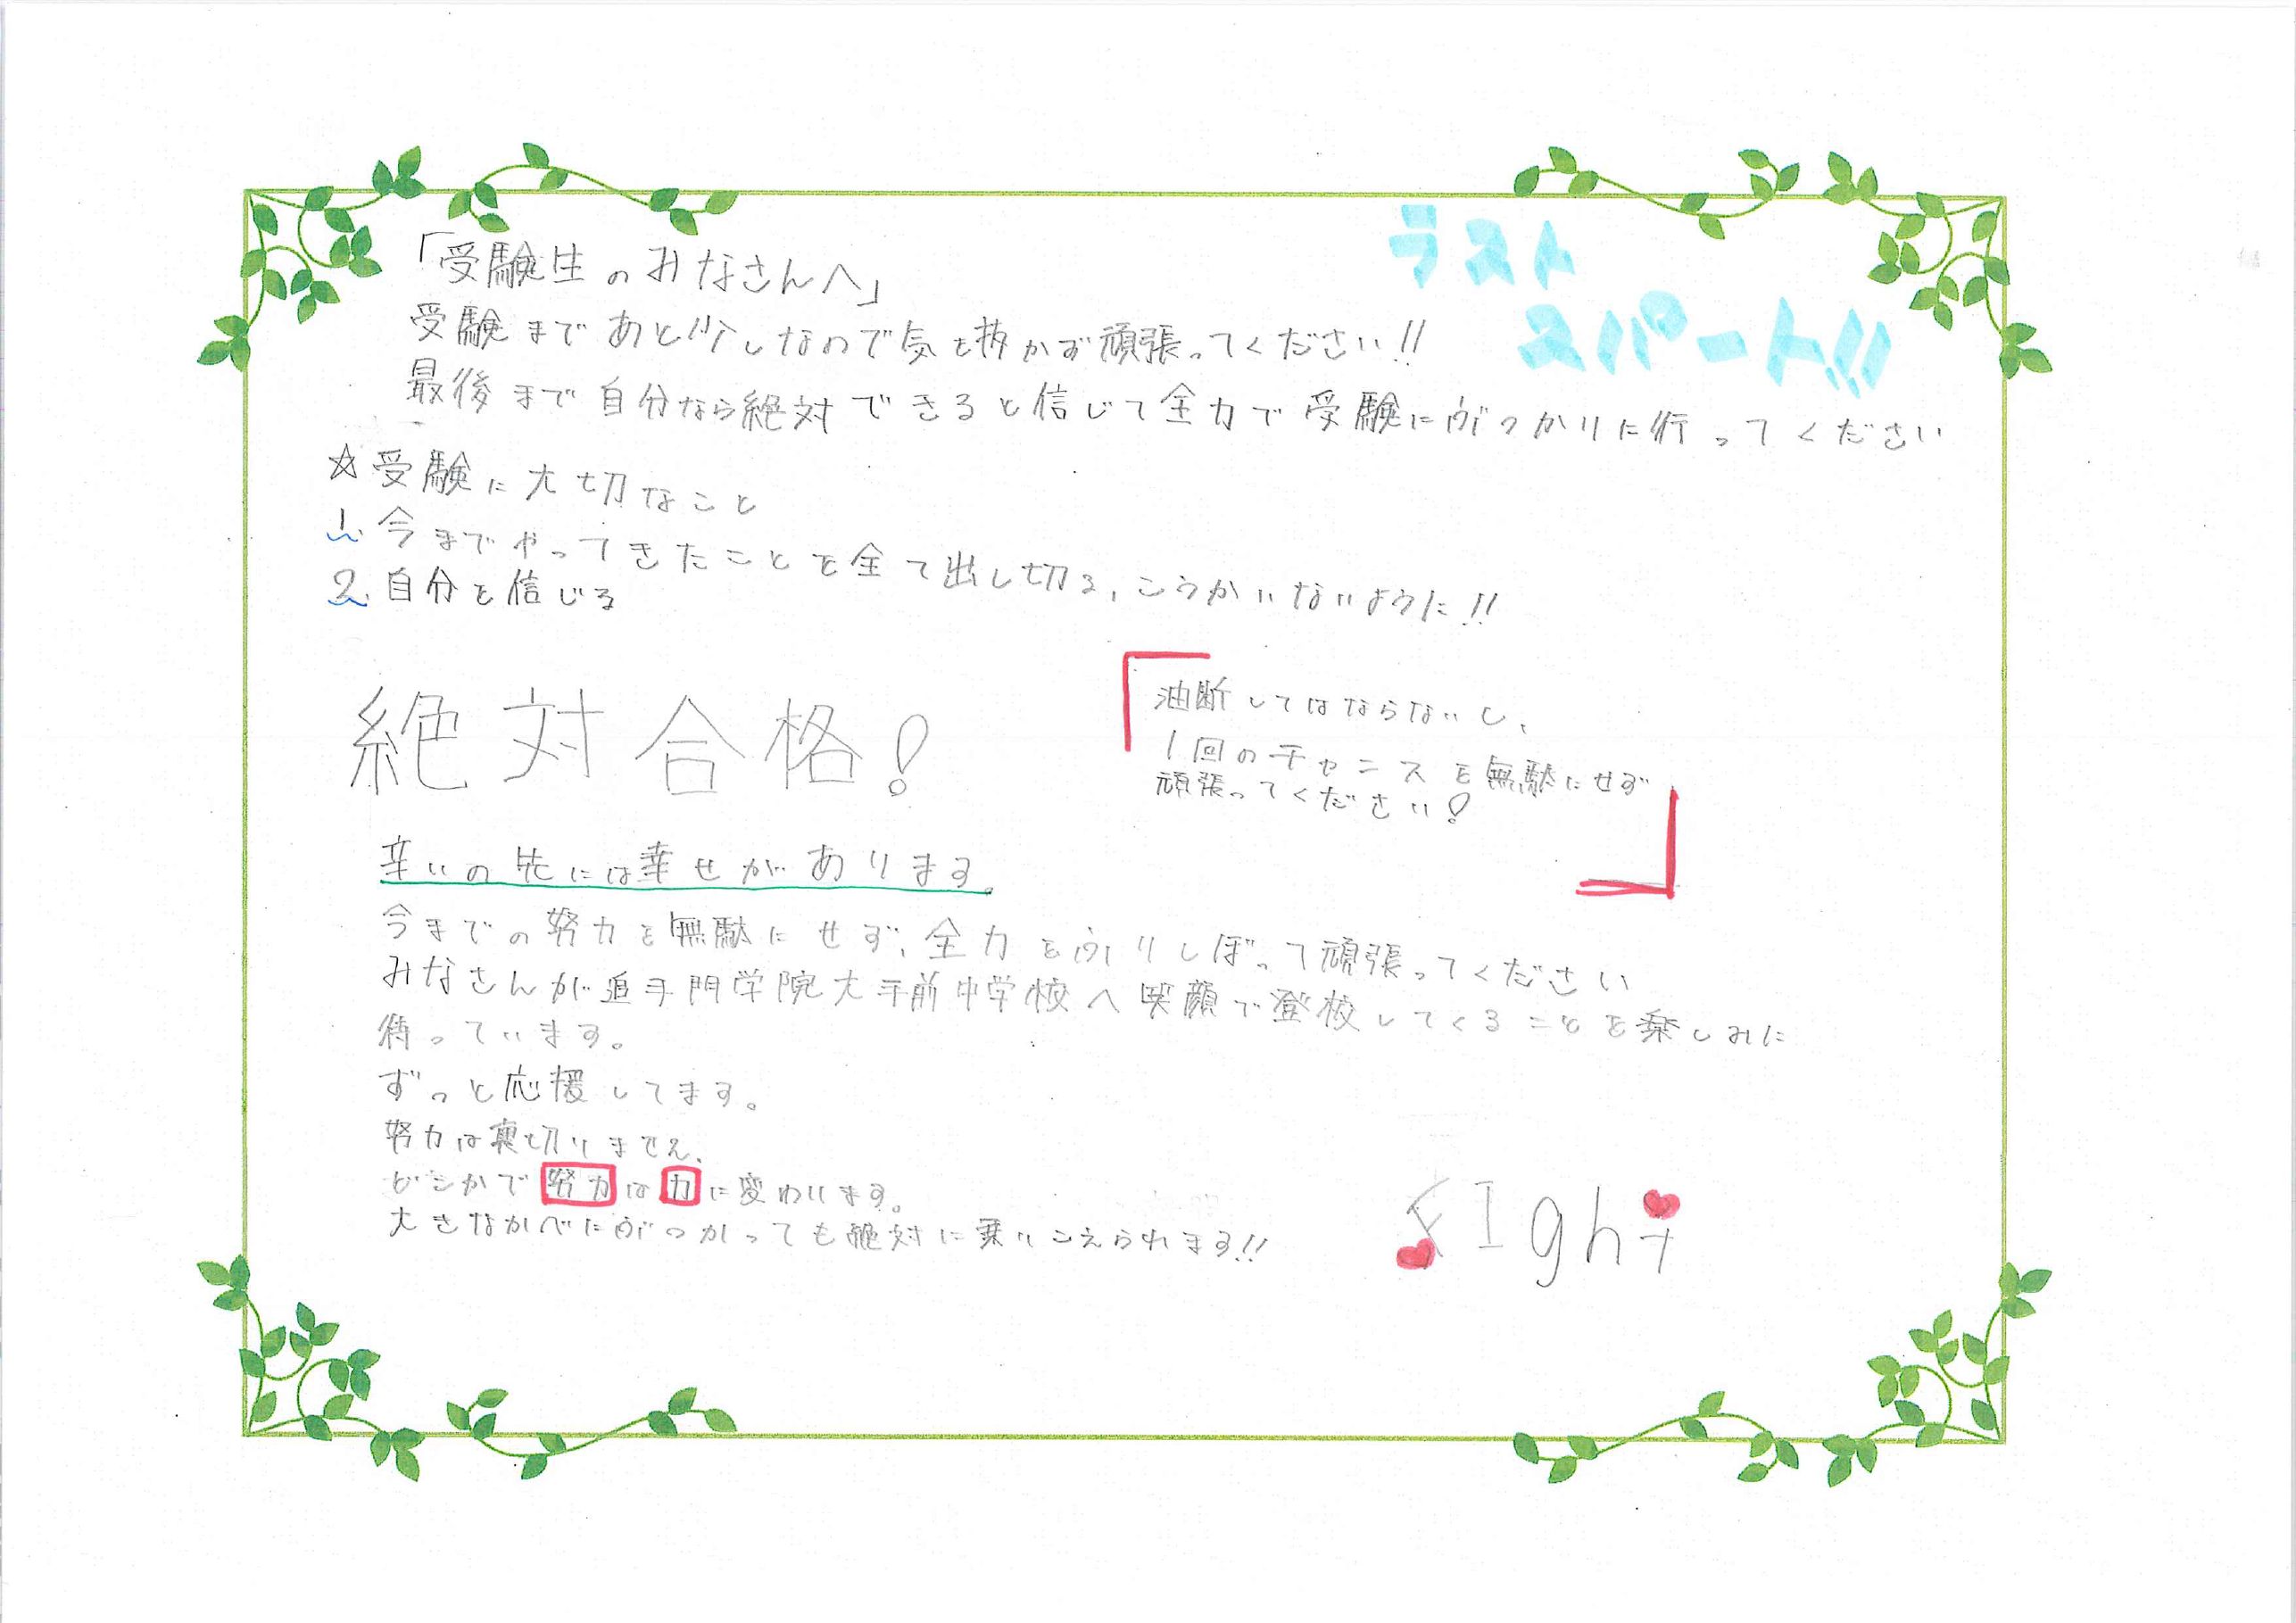 「受験生のみなさんへ」
ラスト
スパート!!!
受験まであと少しなので気を抜かず頑張ってください!!
最後まで自分なら絶対できると信じて全力で受験にぶつかりに行ってください
☆受験に大切なこと
1. 今までやってきたことを全て出し切る,こうかいないように!!
2. 自分を信じる
絶対合格!
「油断してはならないし、
1回のチャンスを無駄にせず
頑張ってください!」
辛いの先には幸せがあります。
今までの努力を無駄にせず、全力をふりしぼって頑張ってください
みなさんが追手門学院大手前中学校へ笑顔で登校してくることを楽しみに
待っています。
ずっと応援してます。
努力は裏切りません。
どこかで努力は力に変わります。
大きなかべにぶつかっても絶対に乗りこえられます!!
FIght